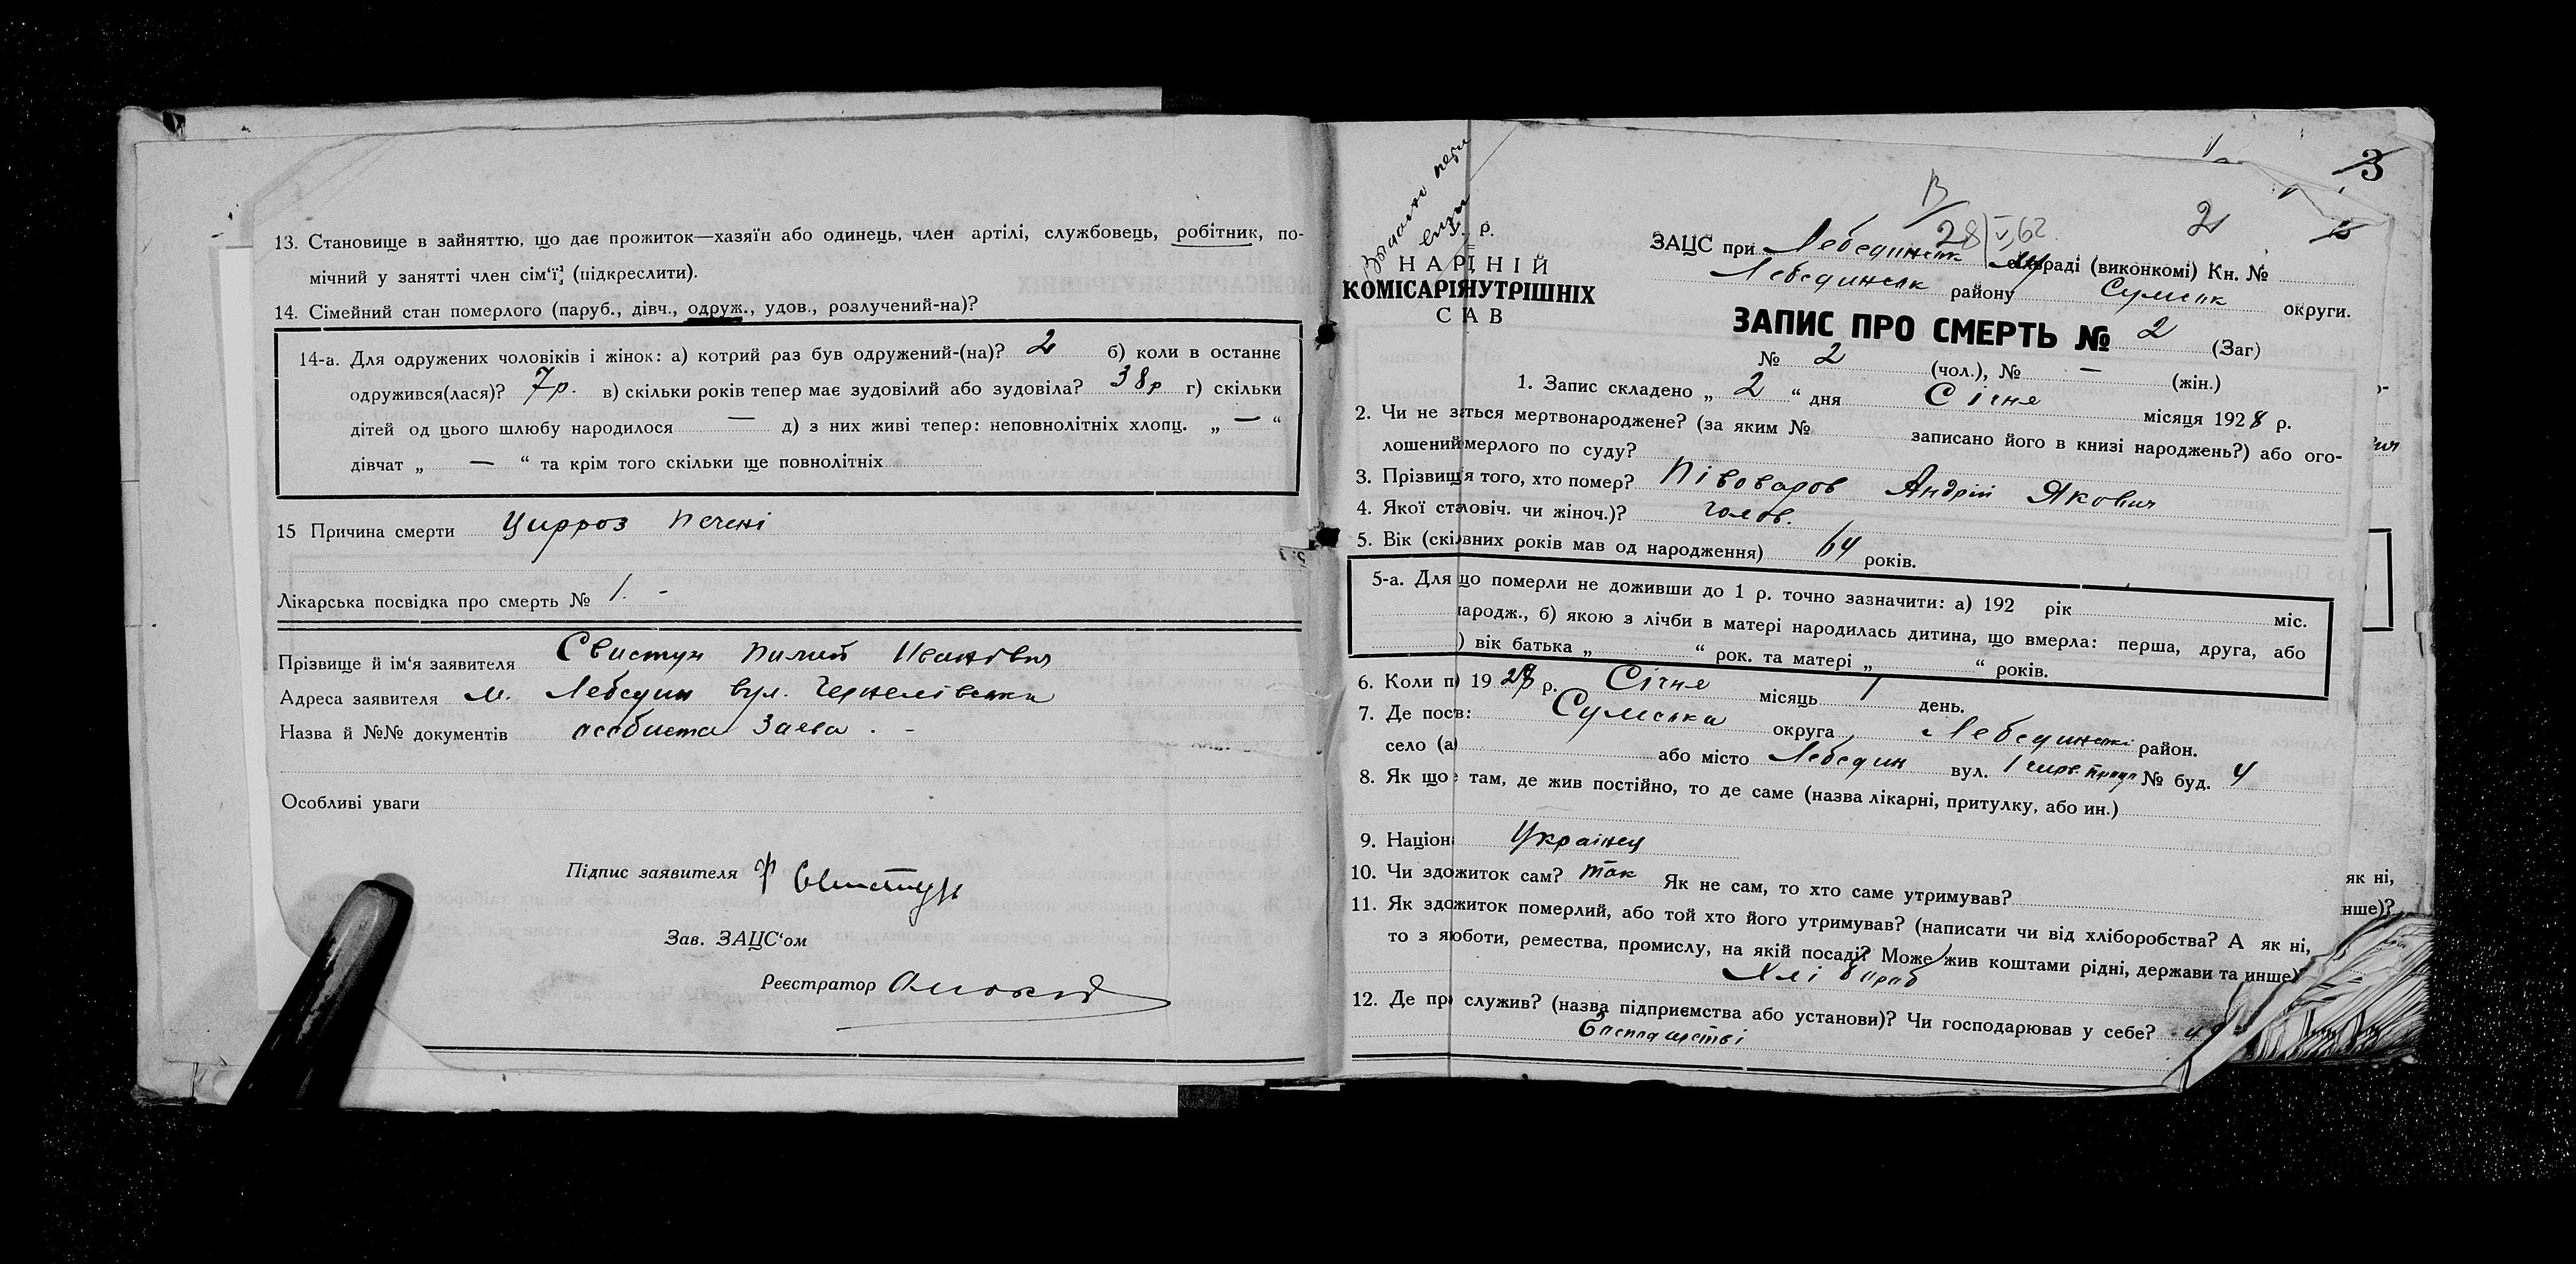 13. Становище в зайняттю, що дає прожиток—хазяїн або одинець, член артілі, службовець, робітник, по-
мічний у занятті член сім'ї (підкреслити).
14. Сімейний стан померлого (паруб., дівч., одруж., удов., розлучений-на)?
14-а. Для одружених чоловіків і жінок: а) котрий раз був одружений-(на)? 2 б) коли в останнє
одружився(лася)? 7 р. в) скільки років тепер має зудовілий або зудовіла? 38 р г) скільки
дітей од цього шлюбу народилося — д) з них живі тепер: неповнолітніх хлопц. „ — “
дівчат „ — “ та крім того скільки ще повнолітніх
15 Причина смерти Цирроз печені
Лікарська посвідка про смерть № 1. -
Прізвище й ім'я заявителя Свистун Пилип Іванович
Адреса заявителя м. Лебедин вул.
Назва й №№ документів особиста заява . -
Особливі уваги
Підпис заявителя Свистун
Зав. ЗАЦС'ом
Реєстратор
3
28/V,62
2
р.
НАР НІЙ
КОМІСАРІ НУТРІШНІХ
С АВ
ЗАЦС при Лебединськ раді (виконкомі) Кн. №
Лебединськ району Сумськ округи.
ЗАПИС ПРО СМЕРТЬ № 2 (Заг)
№ 2 (чол.), № — (жін.)
1. Запис складено „ 2 “ дня Січня місяця 1928 р.
2. Чи не за ться мертвонароджене? (за яким № записано його в книзі народжень?) або ого-
лошений мерлого по суду?
3. Прізвищ я того, хто помер? Півоваров Андрій Якович
4. Якої ст ловіч. чи жіноч.)? чолов.
5. Вік (скі вних років мав од народження) 64 років.
5-а. Для що померли не доживши до 1 р. точно зазначити: а) 192 рік міс.
народж., б) якою з лічби в матері народилась дитина, що вмерла: перша, друга, або
) вік батька „ “ рок. та матері „ “ років.
6. Коли п ) 1928 р. Січня місяць 1 день.
7. Де пос в: Сумська округа Лебединські район.
село (а) або місто Лебедин вул. 1 № буд. 4
8. Як що є там, де жив постійно, то де саме (назва лікарні, притулку, або ин.)
9. Націон Українец
10. Чи здо житок сам? так Як не сам, то хто саме утримував?
11. Як здо житок померлий, або той хто його утримував? (написати чи від хліборобства? А як ні,
то з я оботи, ремества, промислу, на якій посаді? Може жив коштами рідні, держави та инше)?
Хлібороб
12. Де пр служив? (назва підприємства або установи)? Чи господарював у себе?
Господарстві
як ні,
нше)?